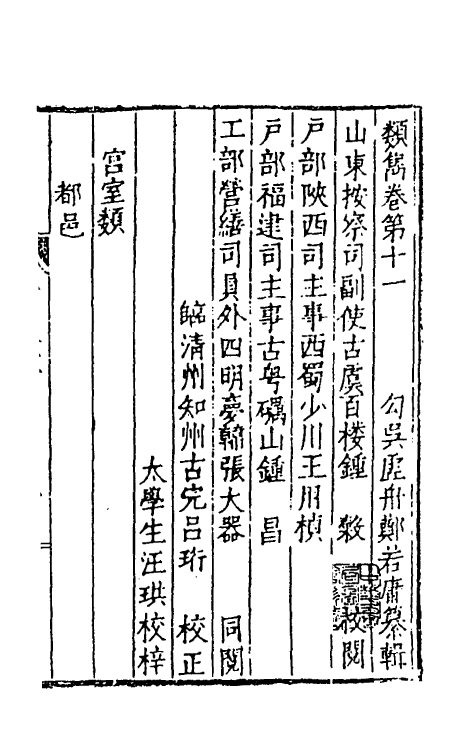 類雋卷第十一 勾吳虛舟鄭若庸纂輯
山東按察司副使古虞百樓鍾 穀 校閱
戶部陝西司主事西蜀少川王用楨
戶部福建司主事古粵礪山鍾 昌
工部營繕司員外四明夢龍張大器 同閱
臨清州知州古完呂珩 校正
太學生汪珙校梓
宮室類
都邑